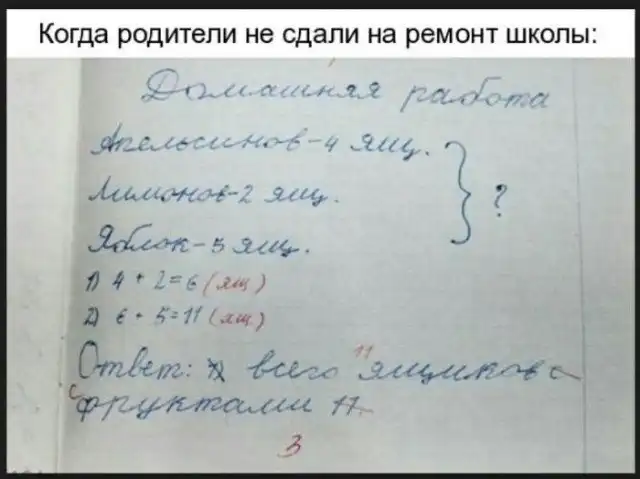 Когда родители не сдали на ремонт школы:
Домашняя работа
Апельсинов-4 ящ.
Лимонов-2 ящ. } ?
Яблок-5 ящ.
1) 4 + 2=6 (ящ)
2) 6 + 5=11 (ящ.)
Ответ: всего 11 ящиков с
с фруктами 11.
3